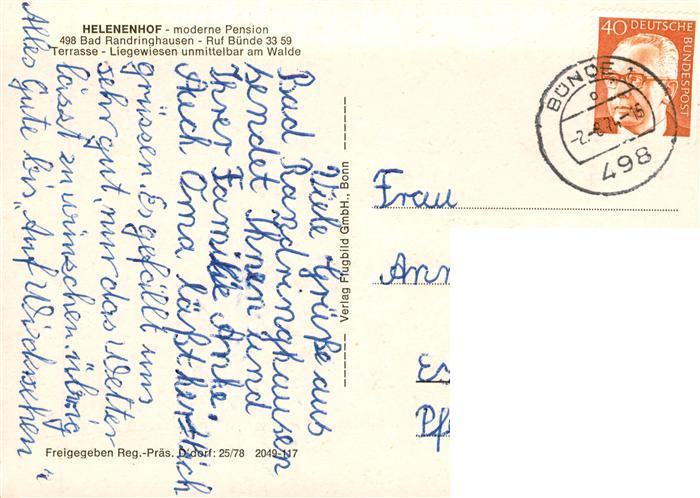 HELENENHOF - moderne Pension
498 Bad Randringhausen - Ruf Bünde 33 59
Terrasse - Liegewiesen unmittelbar am Walde
Viele Grüße aus
Bad Randringhausen
sendet Ihnen und
Ihrer Familie Anke.
Auch Oma läßt herzlich
grüssen. Es gefällt uns
sehr gut, nur das Wetter
lässt zu wünschen übrig
Alles Gute bis "Auf Wiedersehen"
Freigegeben Reg.-Präs. D'dorf: 25/78 2049-117
Verlag Flugbild GmbH., Bonn
40 DEUTSCHE
BUNDESPOST
BÜNDE 1
867
Frau
Ann
Pf